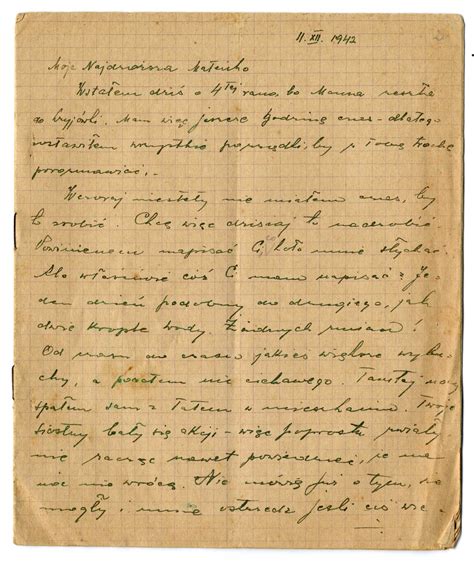 11. XII. 1942
Moja Najdroższa Mateńko
Wstałem dziś o 4tej rano, bo Mama reszta
do kryjówki. Mam więc jeszcze godzinę czasu - dlatego
zostawiłem wszystkie porządki, by z Tobą trochę
porozmawiać.
Wczoraj niestety nie miałem czasu, by
to zrobić. Chcę więc dzisiaj to nadrobić.
Powinienem napisać Ci, co u mnie słychać.
Ale właściwie cóż Ci mam napisać? Je-
den dzień podobny do drugiego, jak
dwie krople wody. Żadnych zmian!
Od czasu do czasu jakieś większe wybu-
chy, a potem nic ciekawego. Tamtej nocy
spałem sam z Tatem w mieszkaniu. Twoje
siostry bały się akcji - więc poprostu zwiały
nie racząc nawet powiedzieć, że na
noc nie wrócą. Nie mówię już o tym, że
mogły i mnie ostrzec jeśli coś wie-